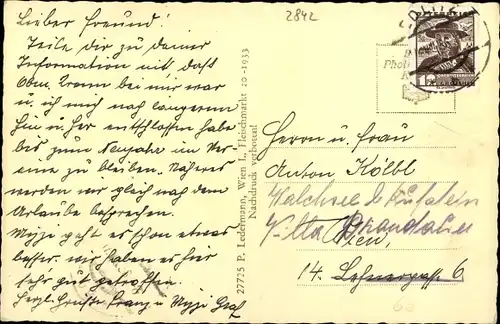 Lieber Freund!
Teile dir zu deiner
Information mit, daß
Obm. bei mir war
u. ich mich nach langerem
hin u. her entschlossen habe
bis zum Neujahr im Ver-
eine zu bleiben. Näheres
werden wir gleich nach dem
Urlaube besprechen.
geht es schon etwas
besser. wir haben es hier
sehr gut getroffen.
Herzl. Grüße Franz u.
2842
27725 P. Ledermann, Wien I., Fleischmarkt 20 - 1933
Nachdruck verboten!
Herrn u. Frau
Anton Kölbl
Walchsee b Kufstein
Villa
Wien,
14. Lehnergasse 6